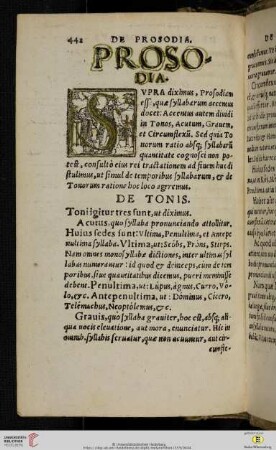 442 DE PROSODIA.
PROSO-
DIA.
SVPRA diximus, Prosodiam
esse, quæ syllabarum accentus
docet: Accentus autem diuidi
in Tonos, Acutum, Grauem,
et Circumflexũ. Sed quia To
norum ratio absq; syllabarũ
quantitate cognosci non po-
test, consultò eius rei tractationem ad finem huc di
stulimus, ut simul de temporibus syllabarum, & de
Tonorum ratione hoc loco agremus.
DE TONIS.
Toni igitur tres sunt, ut diximus.
Acutus, quo syllaba pronunciando attollitur.
Huius sedes sunt: Vltima, Penultima, et Antepe
nultima syllaba. Vltima, ut: Scôbs, Prôns, Stirps.
Nam omnes monosyllabæ dictiones, inter ultimas syl
labas numerantur: id quod & deinceps, cum de tem
poribus, siue quantitatibus dicemus, pueri meminisse
debent. Penultima, ut: Lúpus, ágnus, Curro, Vó-
lo, &c. Antepenultima, ut: Dóminus, Cícero,
Telémachus, Neoptólemus, &c.
Grauis, quo syllaba grauiter, hoc est, absq; ali
qua uocis eleuatione, aut mora, enunciatur. Hic in
omnib. syllabis seruatur, quæ non acuuntur, aut cir
cunfle-